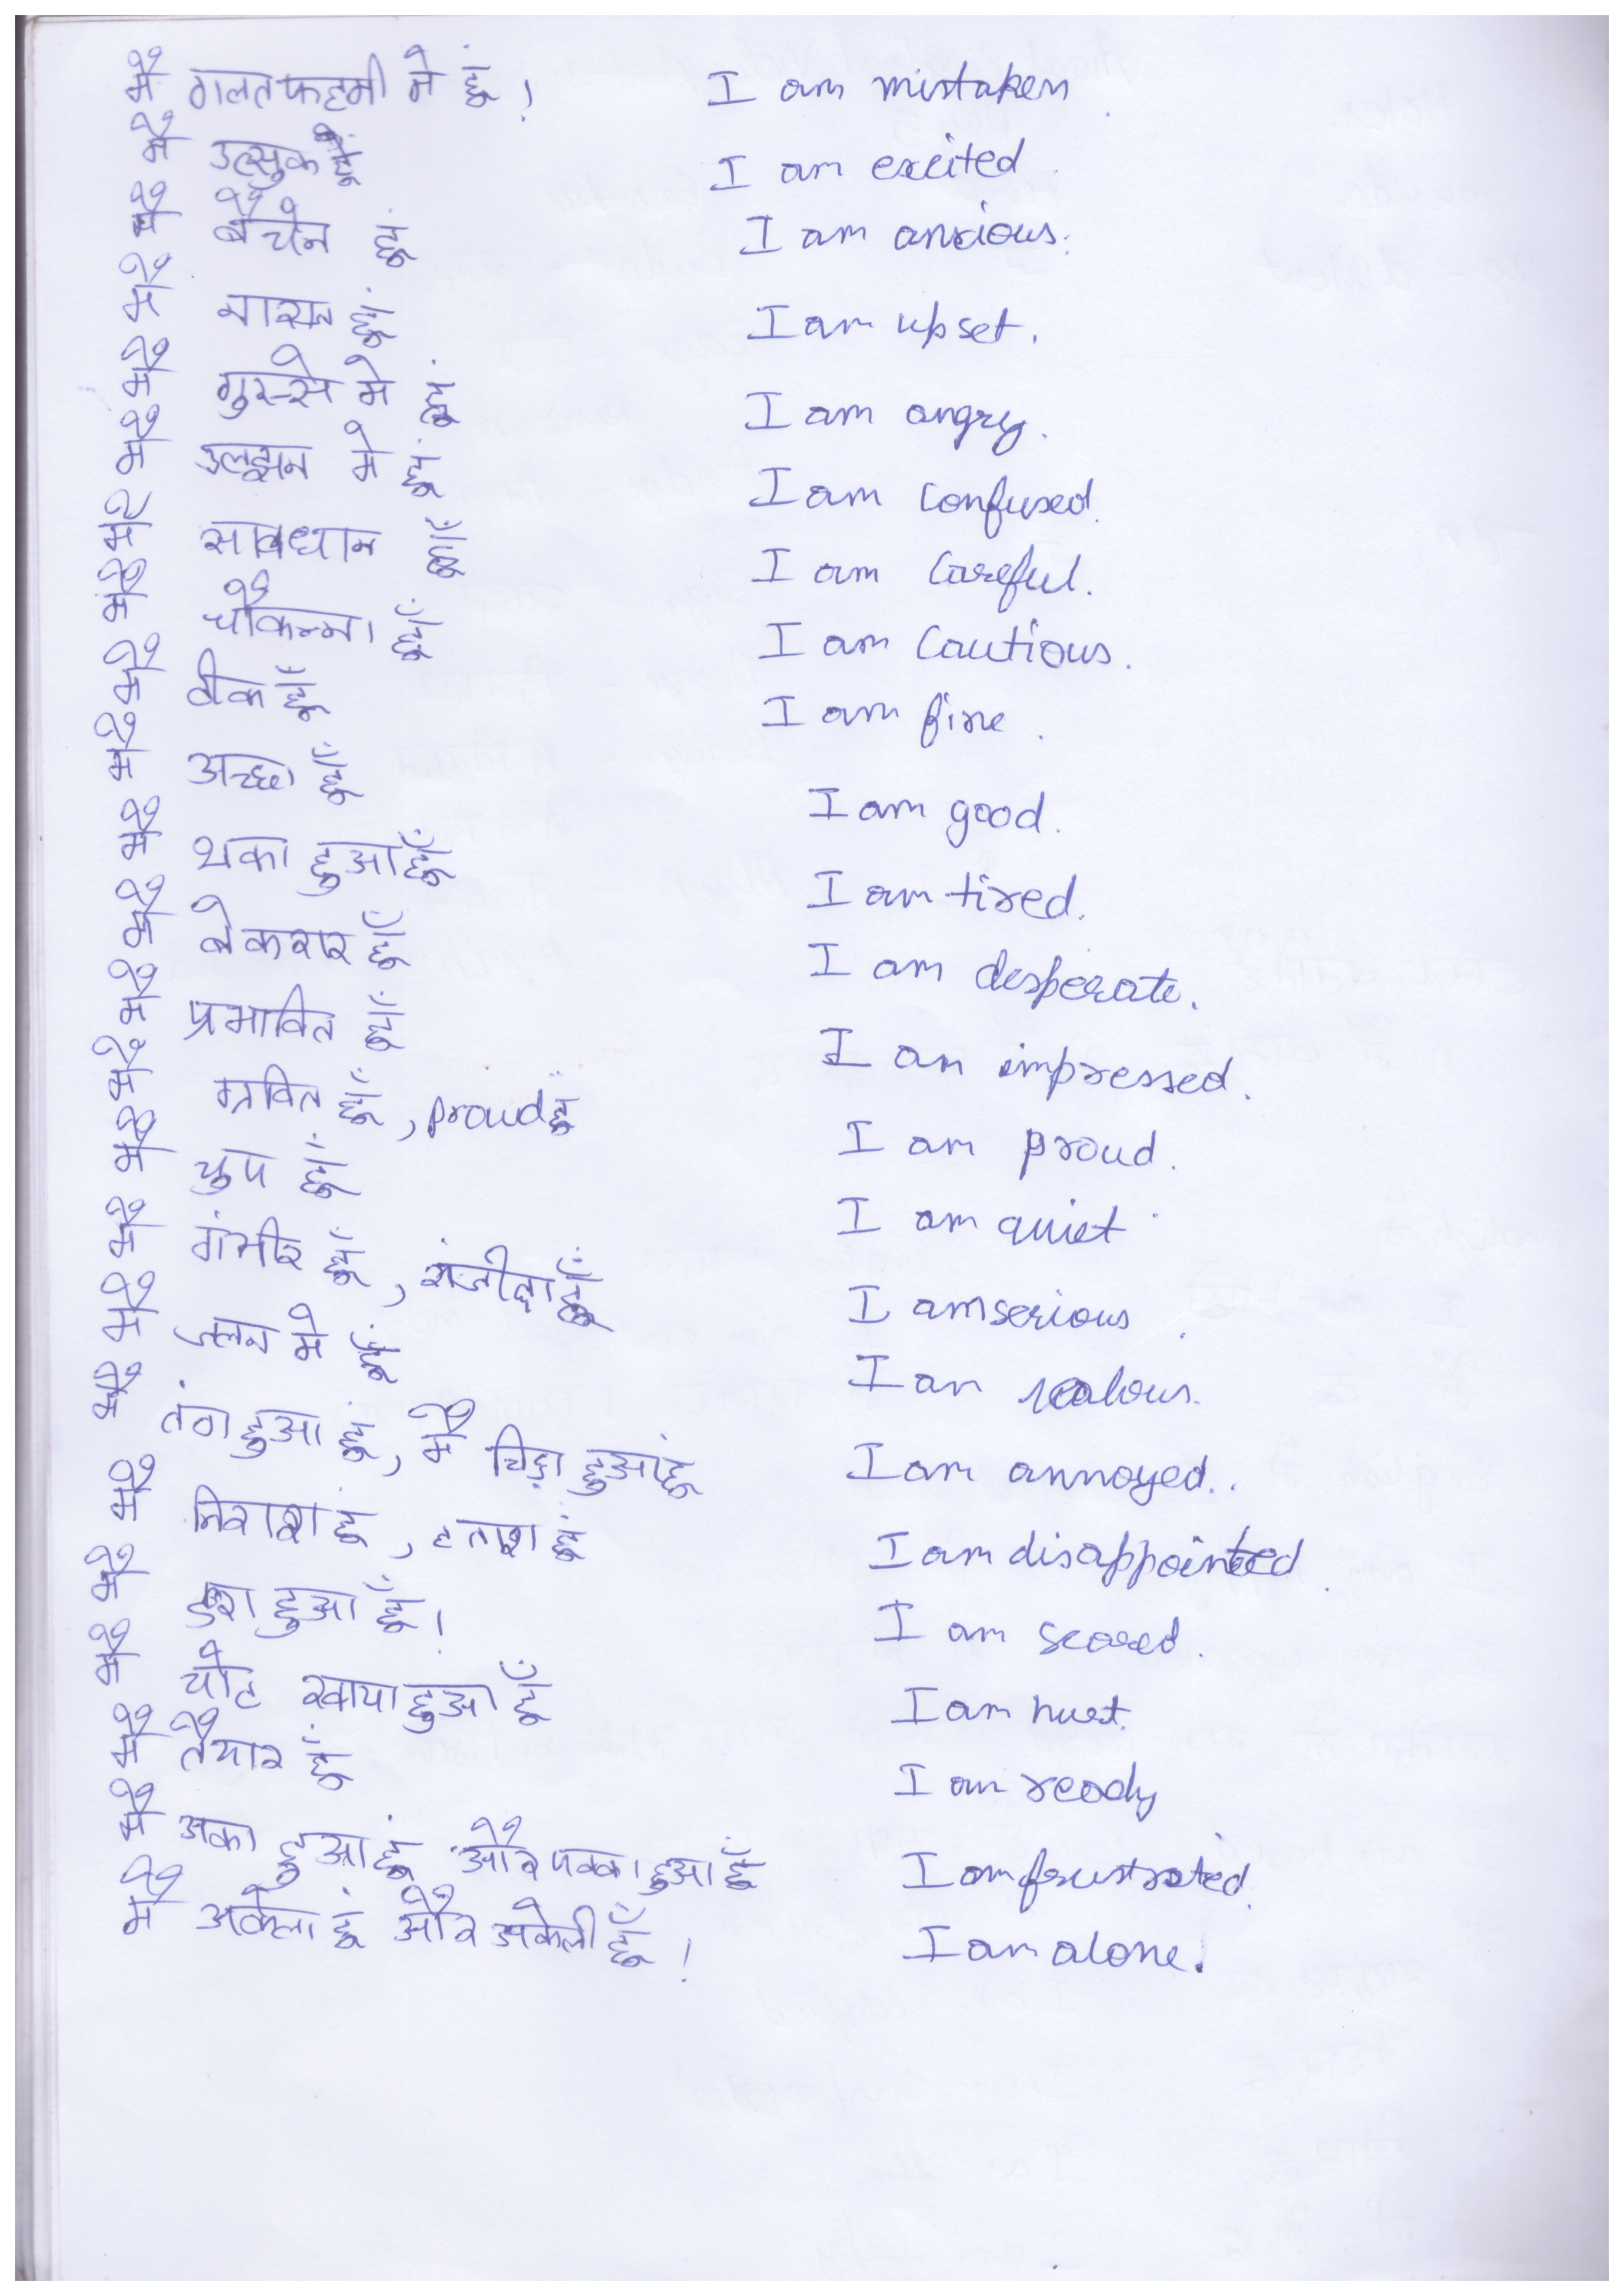 मै गलतफहमी मे हूं । I am mistaken.
मै उत्सुक हूँ I am excited.
मै बैचेन हूं I am anxious.
मै नाराज हूं I am upset.
मै गुस्से मे हूं I am angry.
मै उलझन मे हूं I am confused.
मै सावधान हूँ I am Careful.
मै चौकन्ना हूँ I am Cautious.
मै ठीक हूँ I am fine.
मै अच्छा हूँ I am good.
मै थका हुआ हूँ I am tired.
मै बेकरार हूँ I am desperate.
मै प्रभावित हूँ I am impressed.
मै हूँ, proud हूं I am proud.
मै चुप हूँ I am quiet.
मै गंभीर हूँ, हूँ I am serious.
मै जलन मे हूँ I am
मै तंग हुआ हूं, मै चिड़ा हुआ हूं I am annoyed..
मै निराश हूं, हताश हूं I am disappointed.
मै डरा हुआ हूँ । I am scared.
मै चोट खाया हुआ हूँ I am hurt.
मै तैयार हूँ I am ready
मै हुआ हूं और पक्का हुआ हूँ I am frustrated.
मै अकेला हूं और अकेली हूँ । I am alone.